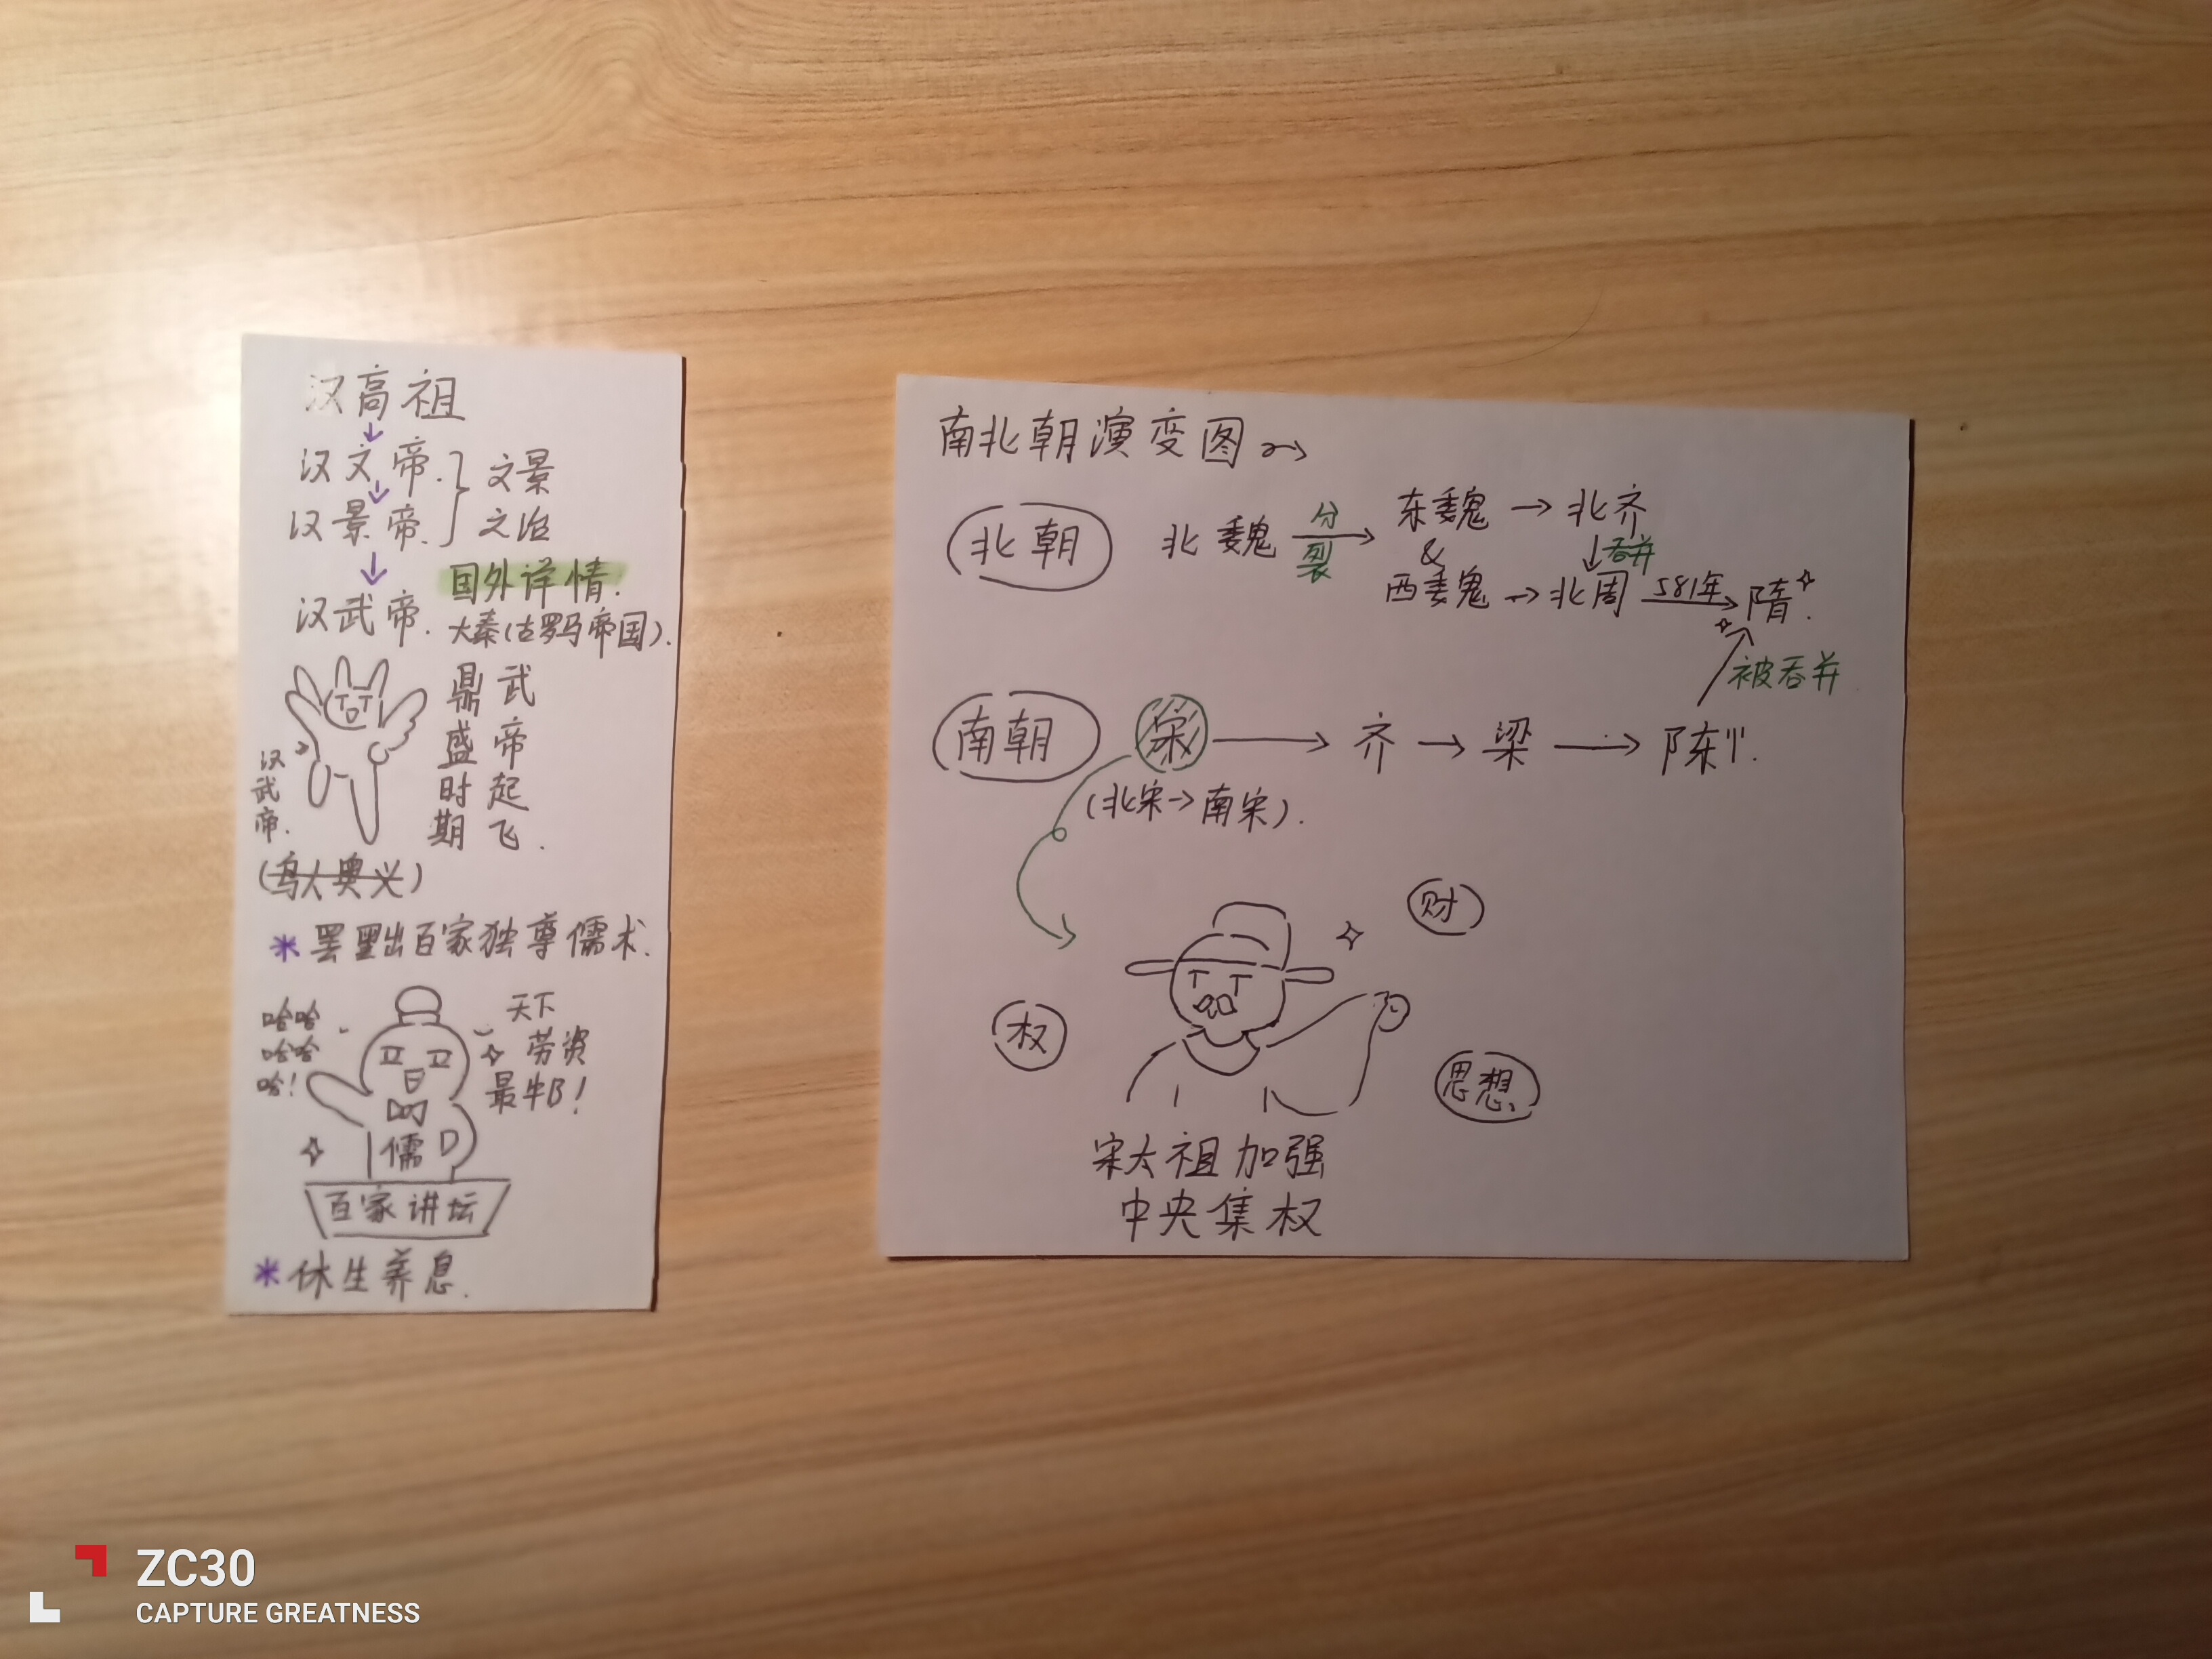 汉高祖
汉文帝.
汉景帝.
文景
之治
汉武帝.
国外详情!
大秦(古罗马帝国).
武帝起飞.
鼎盛时期
汉武帝.
(鸟人奥义)
*罢黜百家独尊儒术.
哈哈
哈哈
哈!
天下
劳资
最牛B!
儒
百家讲坛
*休生养息.
南北朝演变图
北朝
北魏
分裂
东魏 → 北齐
&
吞并
西魏 → 北周 581年 → 隋.
被吞并
南朝
宋 → 齐 → 梁 → 陈.
(北宋→南宋).
财
权
思想
宋太祖加强
中央集权
ZC30
CAPTURE GREATNESS